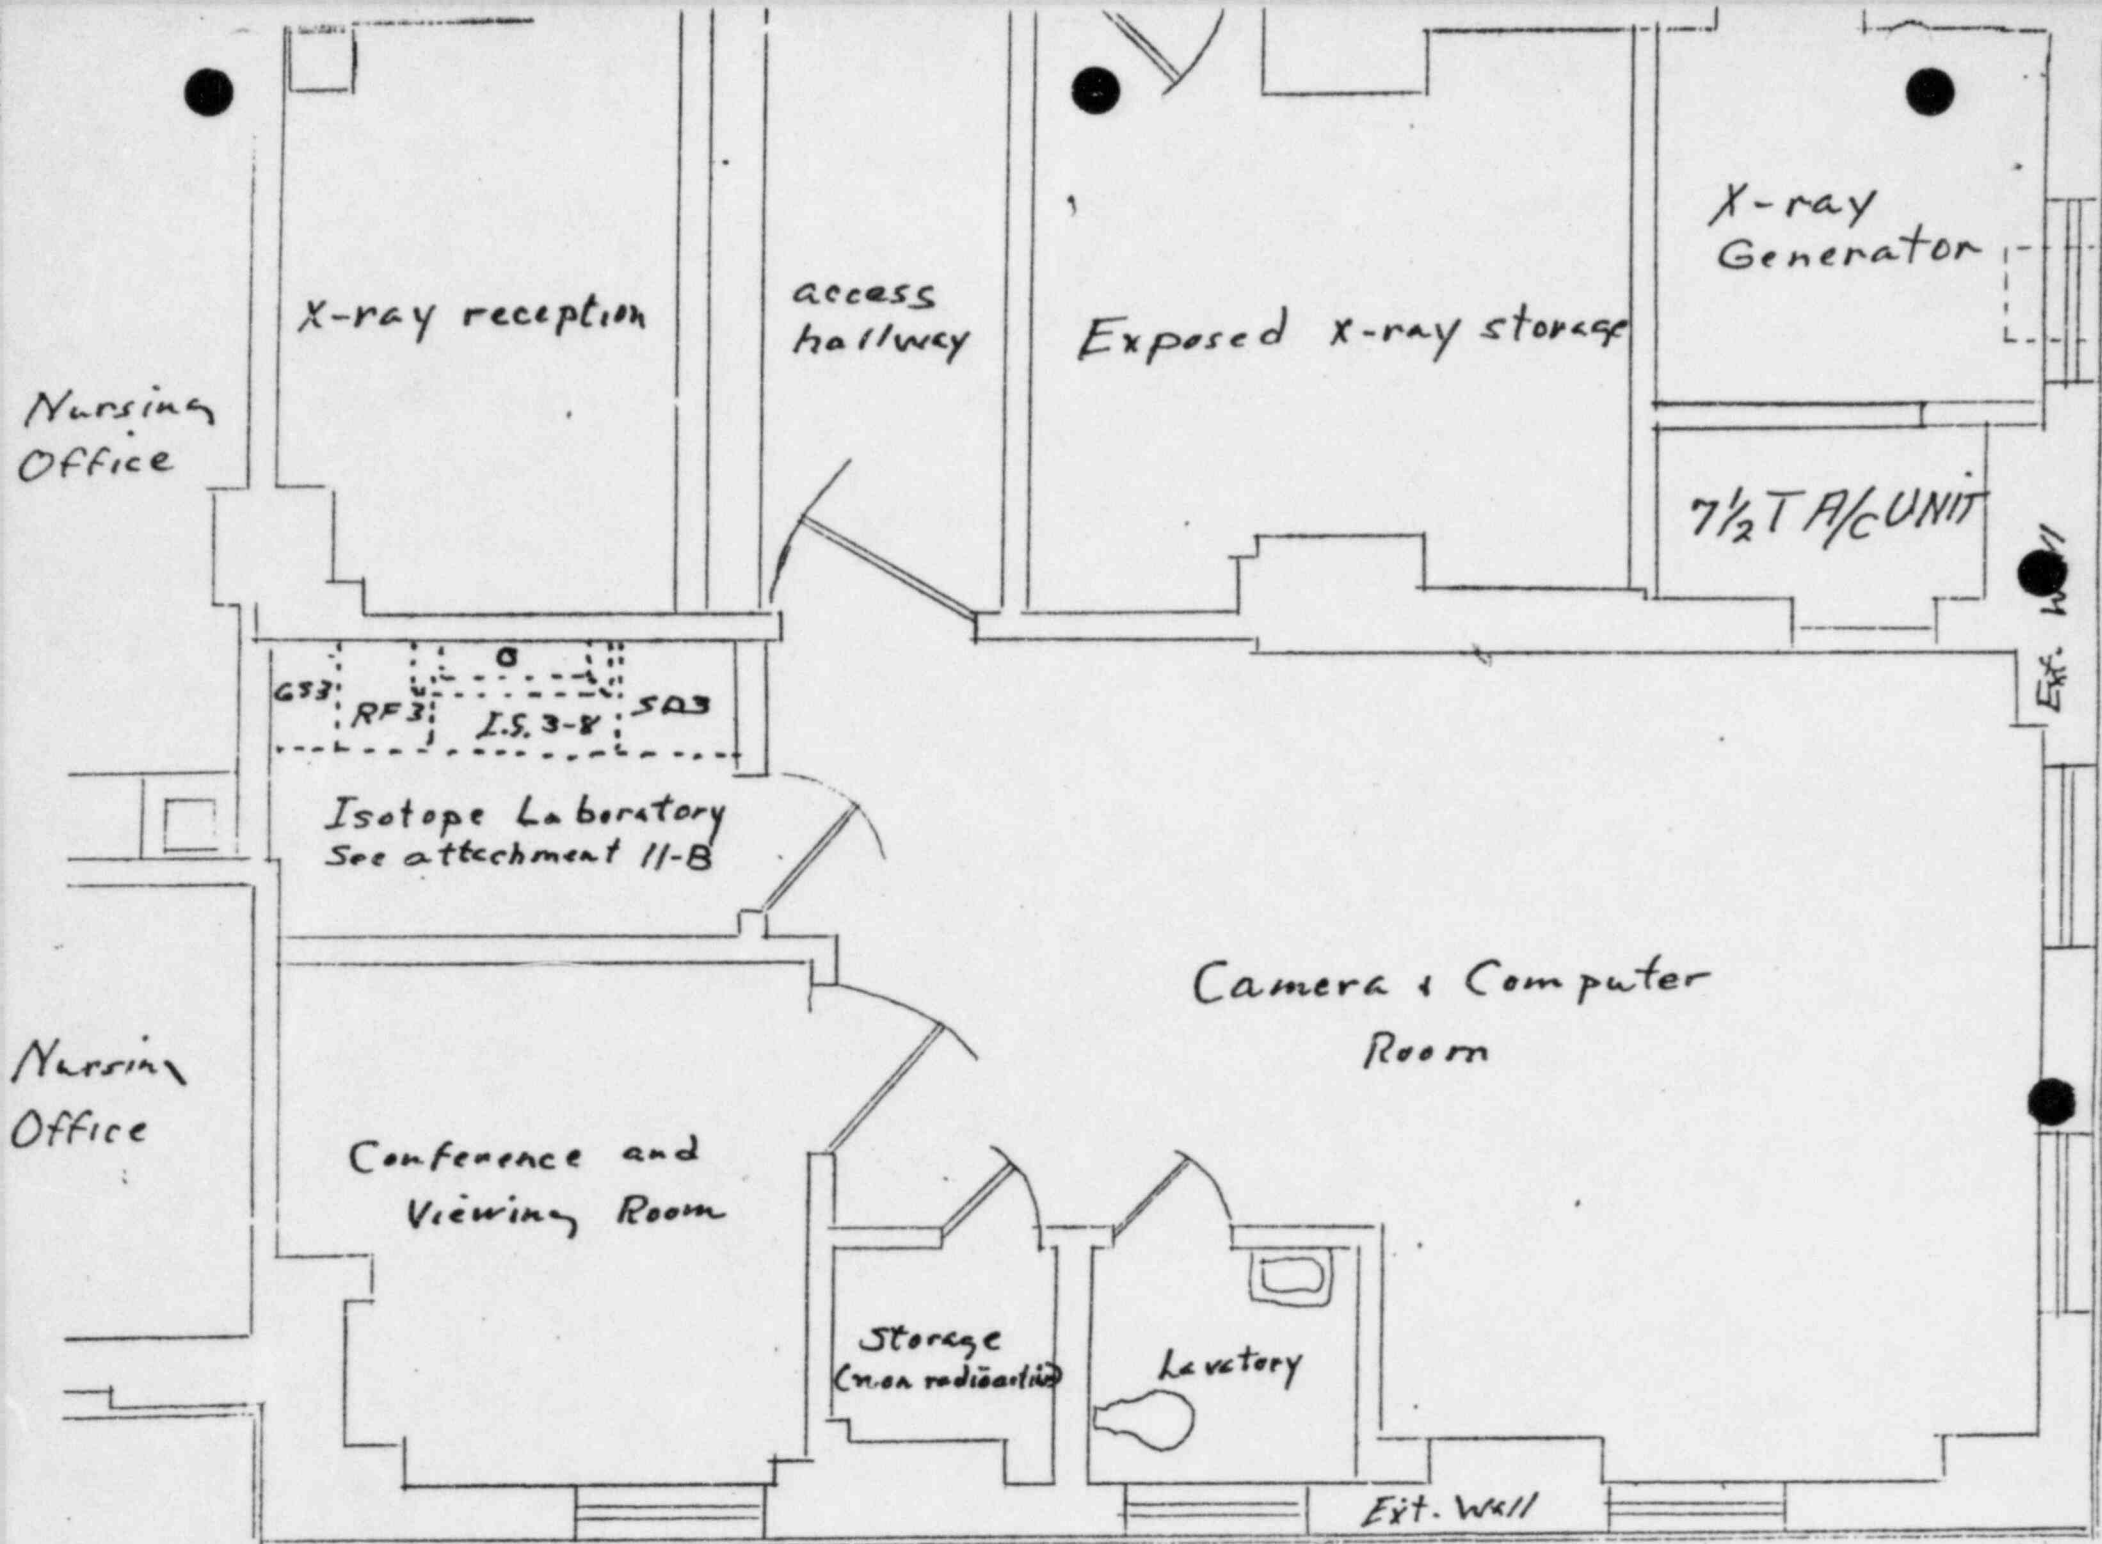 X-ray reception
access
hallway
Exposed x-ray storage
X-ray
Generator
Nursing
Office
7½ T A/C UNIT
Ext. Wall
GS3
RF3
I.S. 3-8
SD3
Isotope Laboratory
See attachment 11-B
Camera & Computer
Room
Nursing
Office
Conference and
Viewing Room
Storage
(non radioactive)
Lavatory
Ext. Wall